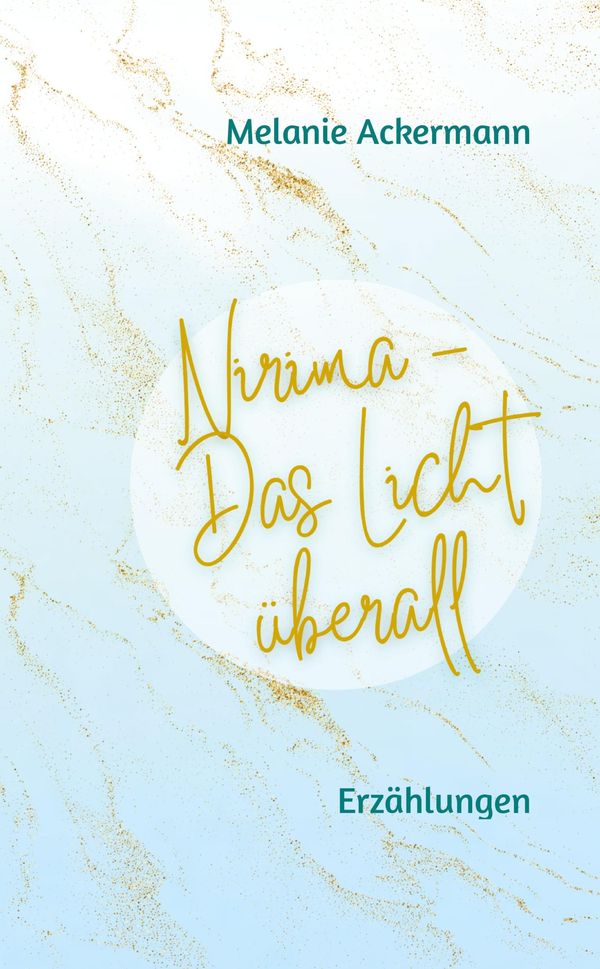 Melanie Ackermann
Nirima –
Das Licht
überall
Erzählungen